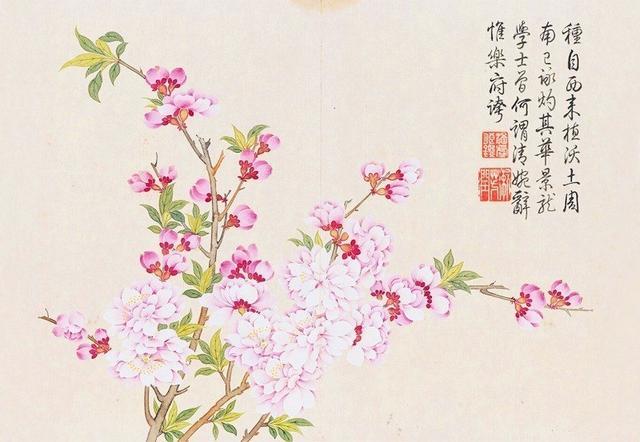 種自西来植沃土周
南已詠灼其華景龍
學士曾何謂清婉辭
惟樂府誇